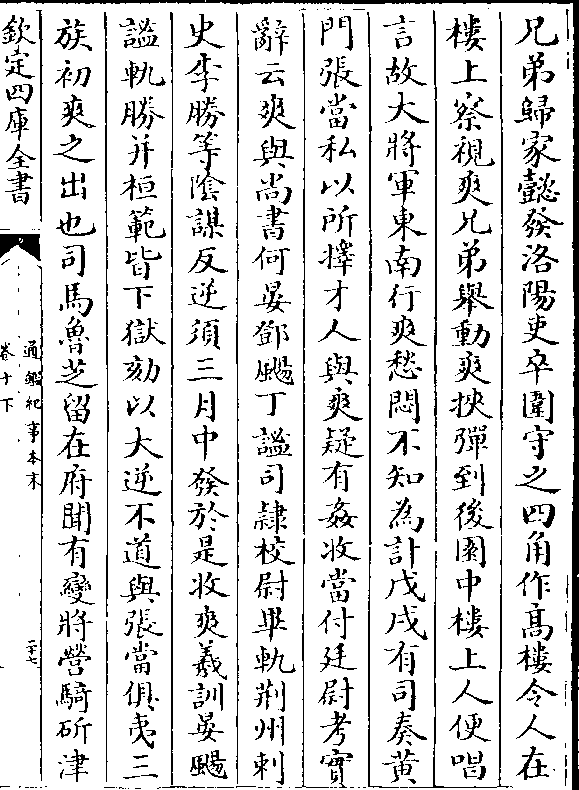 兄弟歸家懿發洛陽吏卒圍守之四角作髙樓令人在
樓上察視爽兄弟舉動爽挾彈到後園中樓上人便唱
言故大將軍東南行爽愁悶不知為計戊戌有司奏黄
門張當私以所擇才人與爽疑有姦收當付廷尉考實
辭云爽與尚書何晏鄧颺丁謐司隸校尉畢軌荆州刺
史李勝等隂謀反逆須三月中發於是收爽羲訓晏颺
謐軌勝并桓範皆下獄劾以大逆不道與張當俱夷三
族初爽之出也司馬魯芝留在府聞有變將營騎斫津
欽定四庫全書
通鑑紀事本末
卷十下
二十七